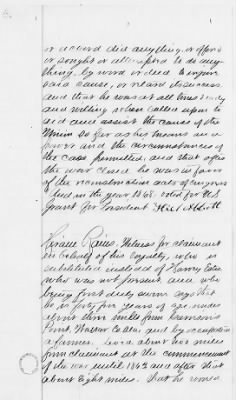 or accord did anything, or offered
or sought or attempted to do any
thing, by word or deed to injure
said cause, or retard its success
and that he was at all times ready
and willing when called upon to
aid and assist the cause of the
Union so far as his means and
power and the circumstances of
the case permitted, and that after
the war closed he was in favor
of the reconstruction acts of congress
and in the year 1868 voted for U.S.
Grant for President
Horace Witness for claimant
in behalf of his loyalty, who is
substituted instead of Henry
who was not present and who
being first duly sworn says that
he is forty five years of age, resides
about miles from
Point, and by occupation
a farmer. Lived about two miles
from claimant at the commencement
of the war until 1862 and after that
about Eight miles. That he